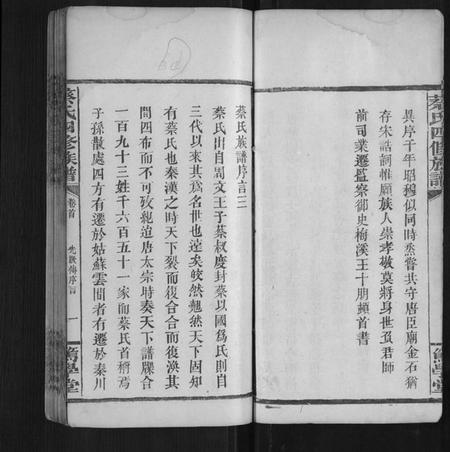 蔡氏四修族譜
具序于年昭穆似同時烝嘗共守唐臣廟金石猶
存宋誥詞惟願族人崇孝敬莫將身世負君師
前司業遷監察御史梅溪王十朋頓首書
篤學堂
蔡氏族譜序言三
蔡氏出自周文王子蔡叔度封蔡以國爲氏則自
三代以來其爲名世也遠矣皎然魁然天下固知
有蔡氏也秦漢之時天下裂而復合合而復渙其
間四布而不可攷稽迨唐太宗時奏天下譜牒合
一百九十三姓千六百五十一家而蔡氏首稱焉
子孫散處四方有遷於姑蘇雲間者有遷於秦川
蔡氏四修族譜
卷首
先世傳序言
一
篤學堂